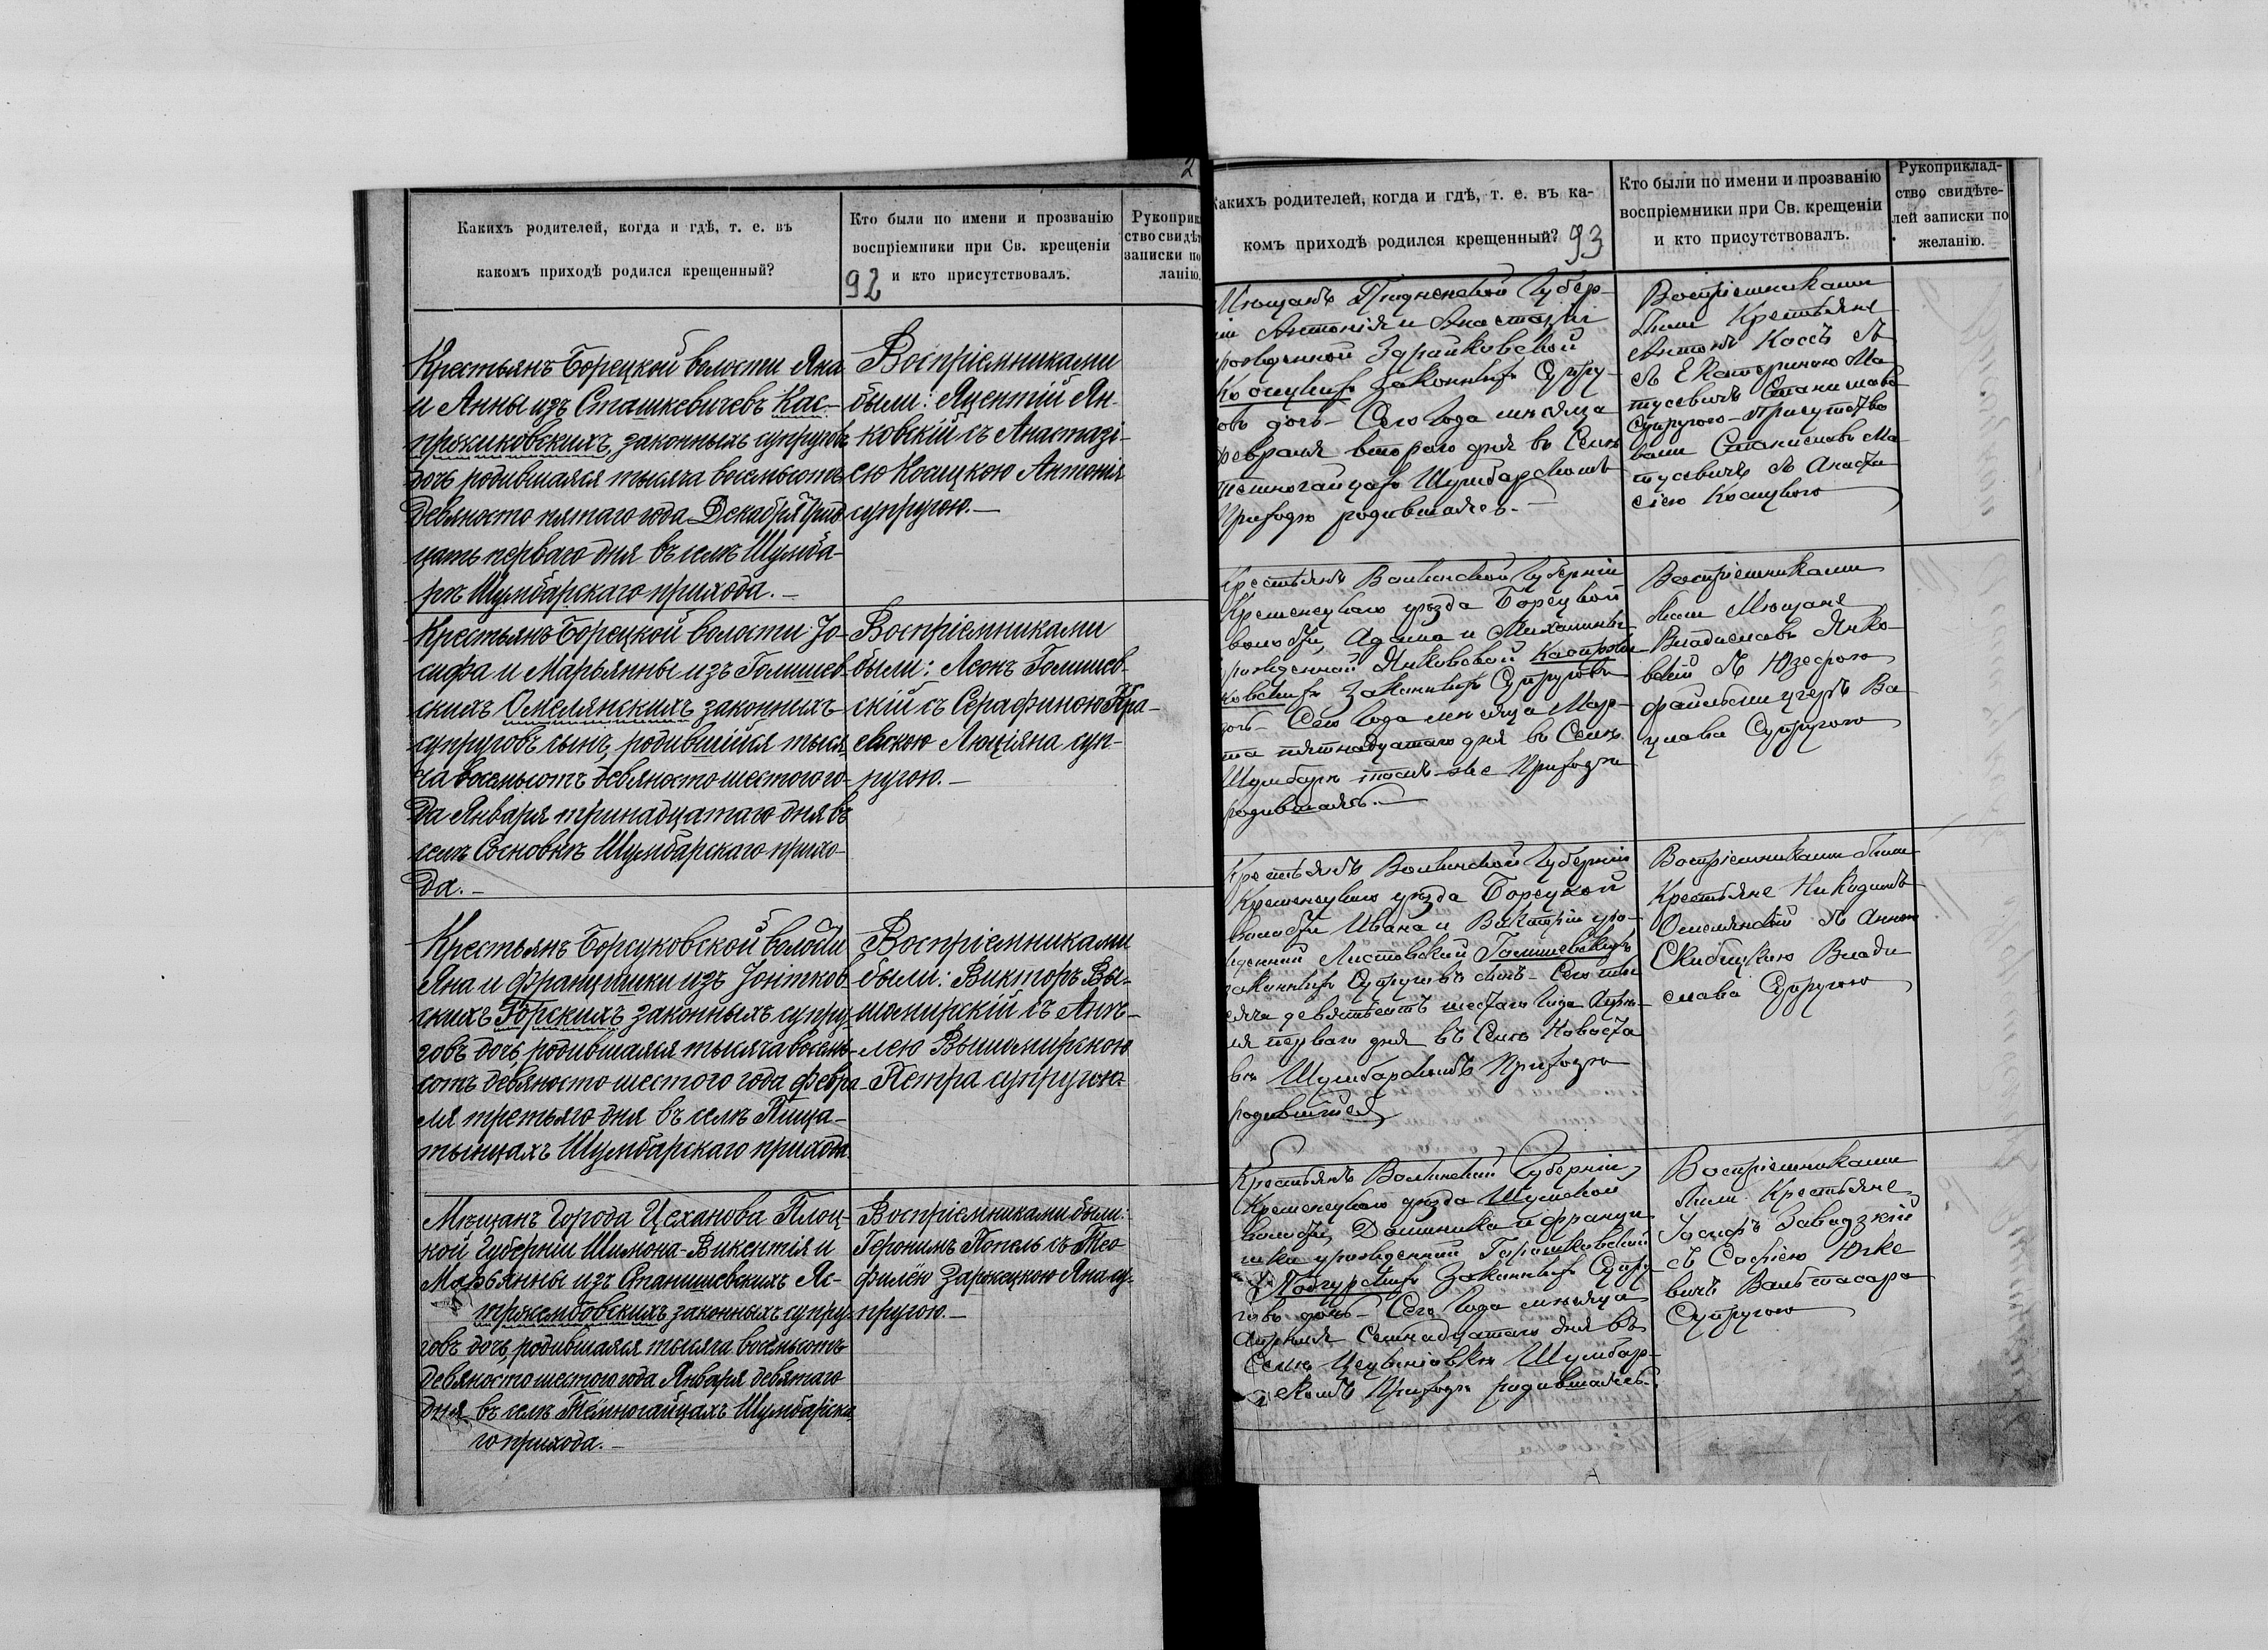 2
Каких родителей, когда и гдѣ, т. е. въ
какомъ приходѣ родился крещенный?
Кто были по имени и прозванію
воспріемники при Св. крещеніи
и кто присутствовалъ.
92
Рукоприк
ство свидѣт
записки по
ланію.
Крестьянъ Борецкой волости Яна
и Анны изъ Сташкевичевъ Кас-
прожиковскихъ, законныхъ супруговъ
дочь родившаяся тысяча восемьсотъ
девяносто пятаго года Декабря трид
цать перваго дня въ селѣ Шумба-
рѣ Шумбарскаго прихода.-
Воспріемниками
были: Яцентій Ян-
ковскій съ Анастазі-
ею Косицкою Антонія
супругою.-
Крестьянъ Борецкой волости Іо-
сифа и Марьянны изъ Голишев-
скихъ Омелянскихъ законныхъ
супруговъ сынъ, родившійся тыся
ча восемьсотъ девяносто шестого го-
да Января тринадцатаго дня въ
селѣ Сосновкѣ Шумбарскаго прихо-
да.-
Воспріемниками
были: Леонъ Голишев-
скій съ Серафиною Кра-
евскою Люціяна суп-
ругою.-
Крестьянъ Борсуковской волости
Яна и Францишки изъ Іонітков-
скихъ Горскихъ законныхъ супру-
говъ дочь, родившаяся тысяча восемь-
сотъ девяносто шестого года февра-
ля третьяго дня въ селѣ Пища-
тынцахъ Шумбарскаго прихода
Воспріемниками
были: Викторъ Вы-
шомирскій съ Анѣ-
лею Вышомирскою
Петра супругою
Мѣщанъ Города Цеханова Плоц-
кой Губерніи Шимона-Викентія и
Марьянны изъ Станишевскихъ Яс-
тржембовскихъ законныхъ супру-
говъ дочь, родившаяся тысяча восемьсотъ
девяносто шестого года Января девятаго
дня въ селѣ Тёмногайцахъ Шумбарска
го прихода.-
Воспріемниками были:
Геронимъ Попель съ Тео
филёю Заржецкою Яна су-
пругою.-
Какихъ родителей, когда и гдѣ, т. е. въ ка-
комъ приходѣ родился крещенный?
93
Кто были по имени и прозванію
воспріемники при Св. крещеніи
и кто присутствовалъ.
Рукоприклад-
ство свидѣте-
лей записки по
желанію.
Мѣщанъ Губер-
ніи Антонія и Анастазіи
рожденной Здрайковской
Косицкихъ законныхъ Супру-
овъ дочь- Сего Года мѣсяца
февраля второго дня въ Селѣ
Темногайцахъ Шумбарскомъ
Приходѣ родившаяся.-
Воспріемниками
были Крестьяне
Антонъ Коссъ съ
съ Екатериною Ма
тусевичъ Станислава
Супругою- присутство
вали Станиславъ Ма
тусевичъ съ Анаста
сіею Косицкою
Крестьянъ Волынской Губерніи
Кременецкаго уѣзда Борецкой
волости, Адама и Михалины
рожденной Янковской Каспржи
ковскихъ Законныхъ Супруговъ
дочь- Сего Года мѣсяца Мар-
та пятнадцатаго дня въ Селѣ
Шумбарѣ томъ-же Приходѣ
родившаяся.-
Воспріемниками
были Мѣщане
Владиславъ Янко-
вскій съ Юзефою
Ва
цлава Супругою
Крестьянъ Волынской Губерніи
Кременецкаго уѣзда Борецкой
волости Ивана и Викторіи уро-
жденной Листовский Голишевскихъ
Законныхъ Супруговъ сынъ- Сего ты
сяча девятьсотъ шестаго Года Апрѣ-
ля перваго дня въ Селѣ Новоста
вѣ Шумбарскомъ Приходѣ
родившійся
Воспріемниками были
Крестьяне Никодимъ
Омелянскій съ Анною
Скибицкою Влади
слава Супругою
Крестьянъ Волынской Губерніи
Кременецкаго уѣзда Шумской
волости, Доминика и Францы
шки урожденной Гарашковской
Подгурскихъ Законныхъ Супру
говъ дочь- Сего Года мѣсяца
Апрѣля Семнадцатаго дня въ
Селѣ Цецыніовкѣ Шумбар-
скомъ Приходѣ родившаяся.
Воспріемниками
были Крестьяне
Іосифъ Завадзкій
съ Софіею Юхке
вичъ Вальтасара
Супругою